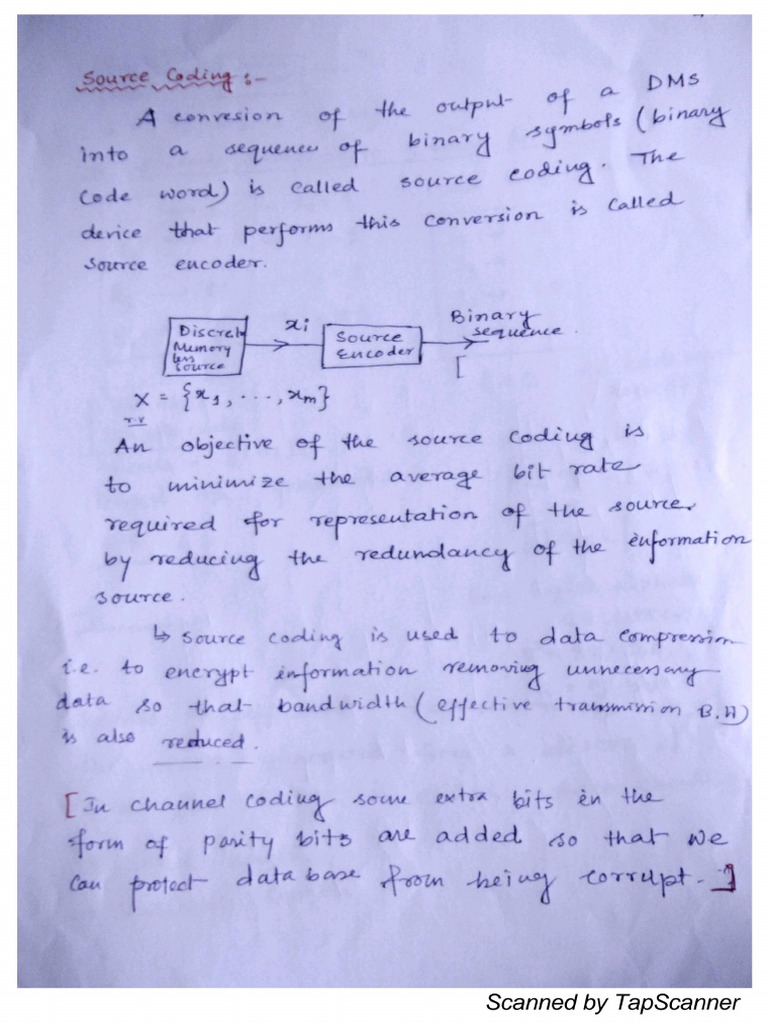 Source Coding :-
A convesion of the output of a DMS
into a sequence of binary symbols (binary
Code word) is called source coding. The
device that performs this conversion is called
Source encoder.
Discrete
Memory
less
Source
xi
Source
Encoder
Binary
sequence.
[
X = {x1, ..., xm}
r.v
An objective of the source coding is
to minimize the average bit rate
required for representation of the source
by reducing the redundancy of the information
source.
↳ Source coding is used to data compression
i.e. to encrypt information removing unnecessary
data so that bandwidth (effective transmission B.H)
is also reduced.
[In channel coding some extra bits in the
form of parity bits are added so that we
can protect data base from being corrupt.]
Scanned by TapScanner